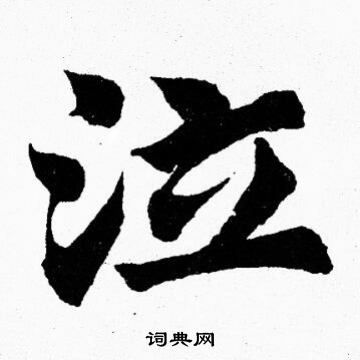 泣
词典网